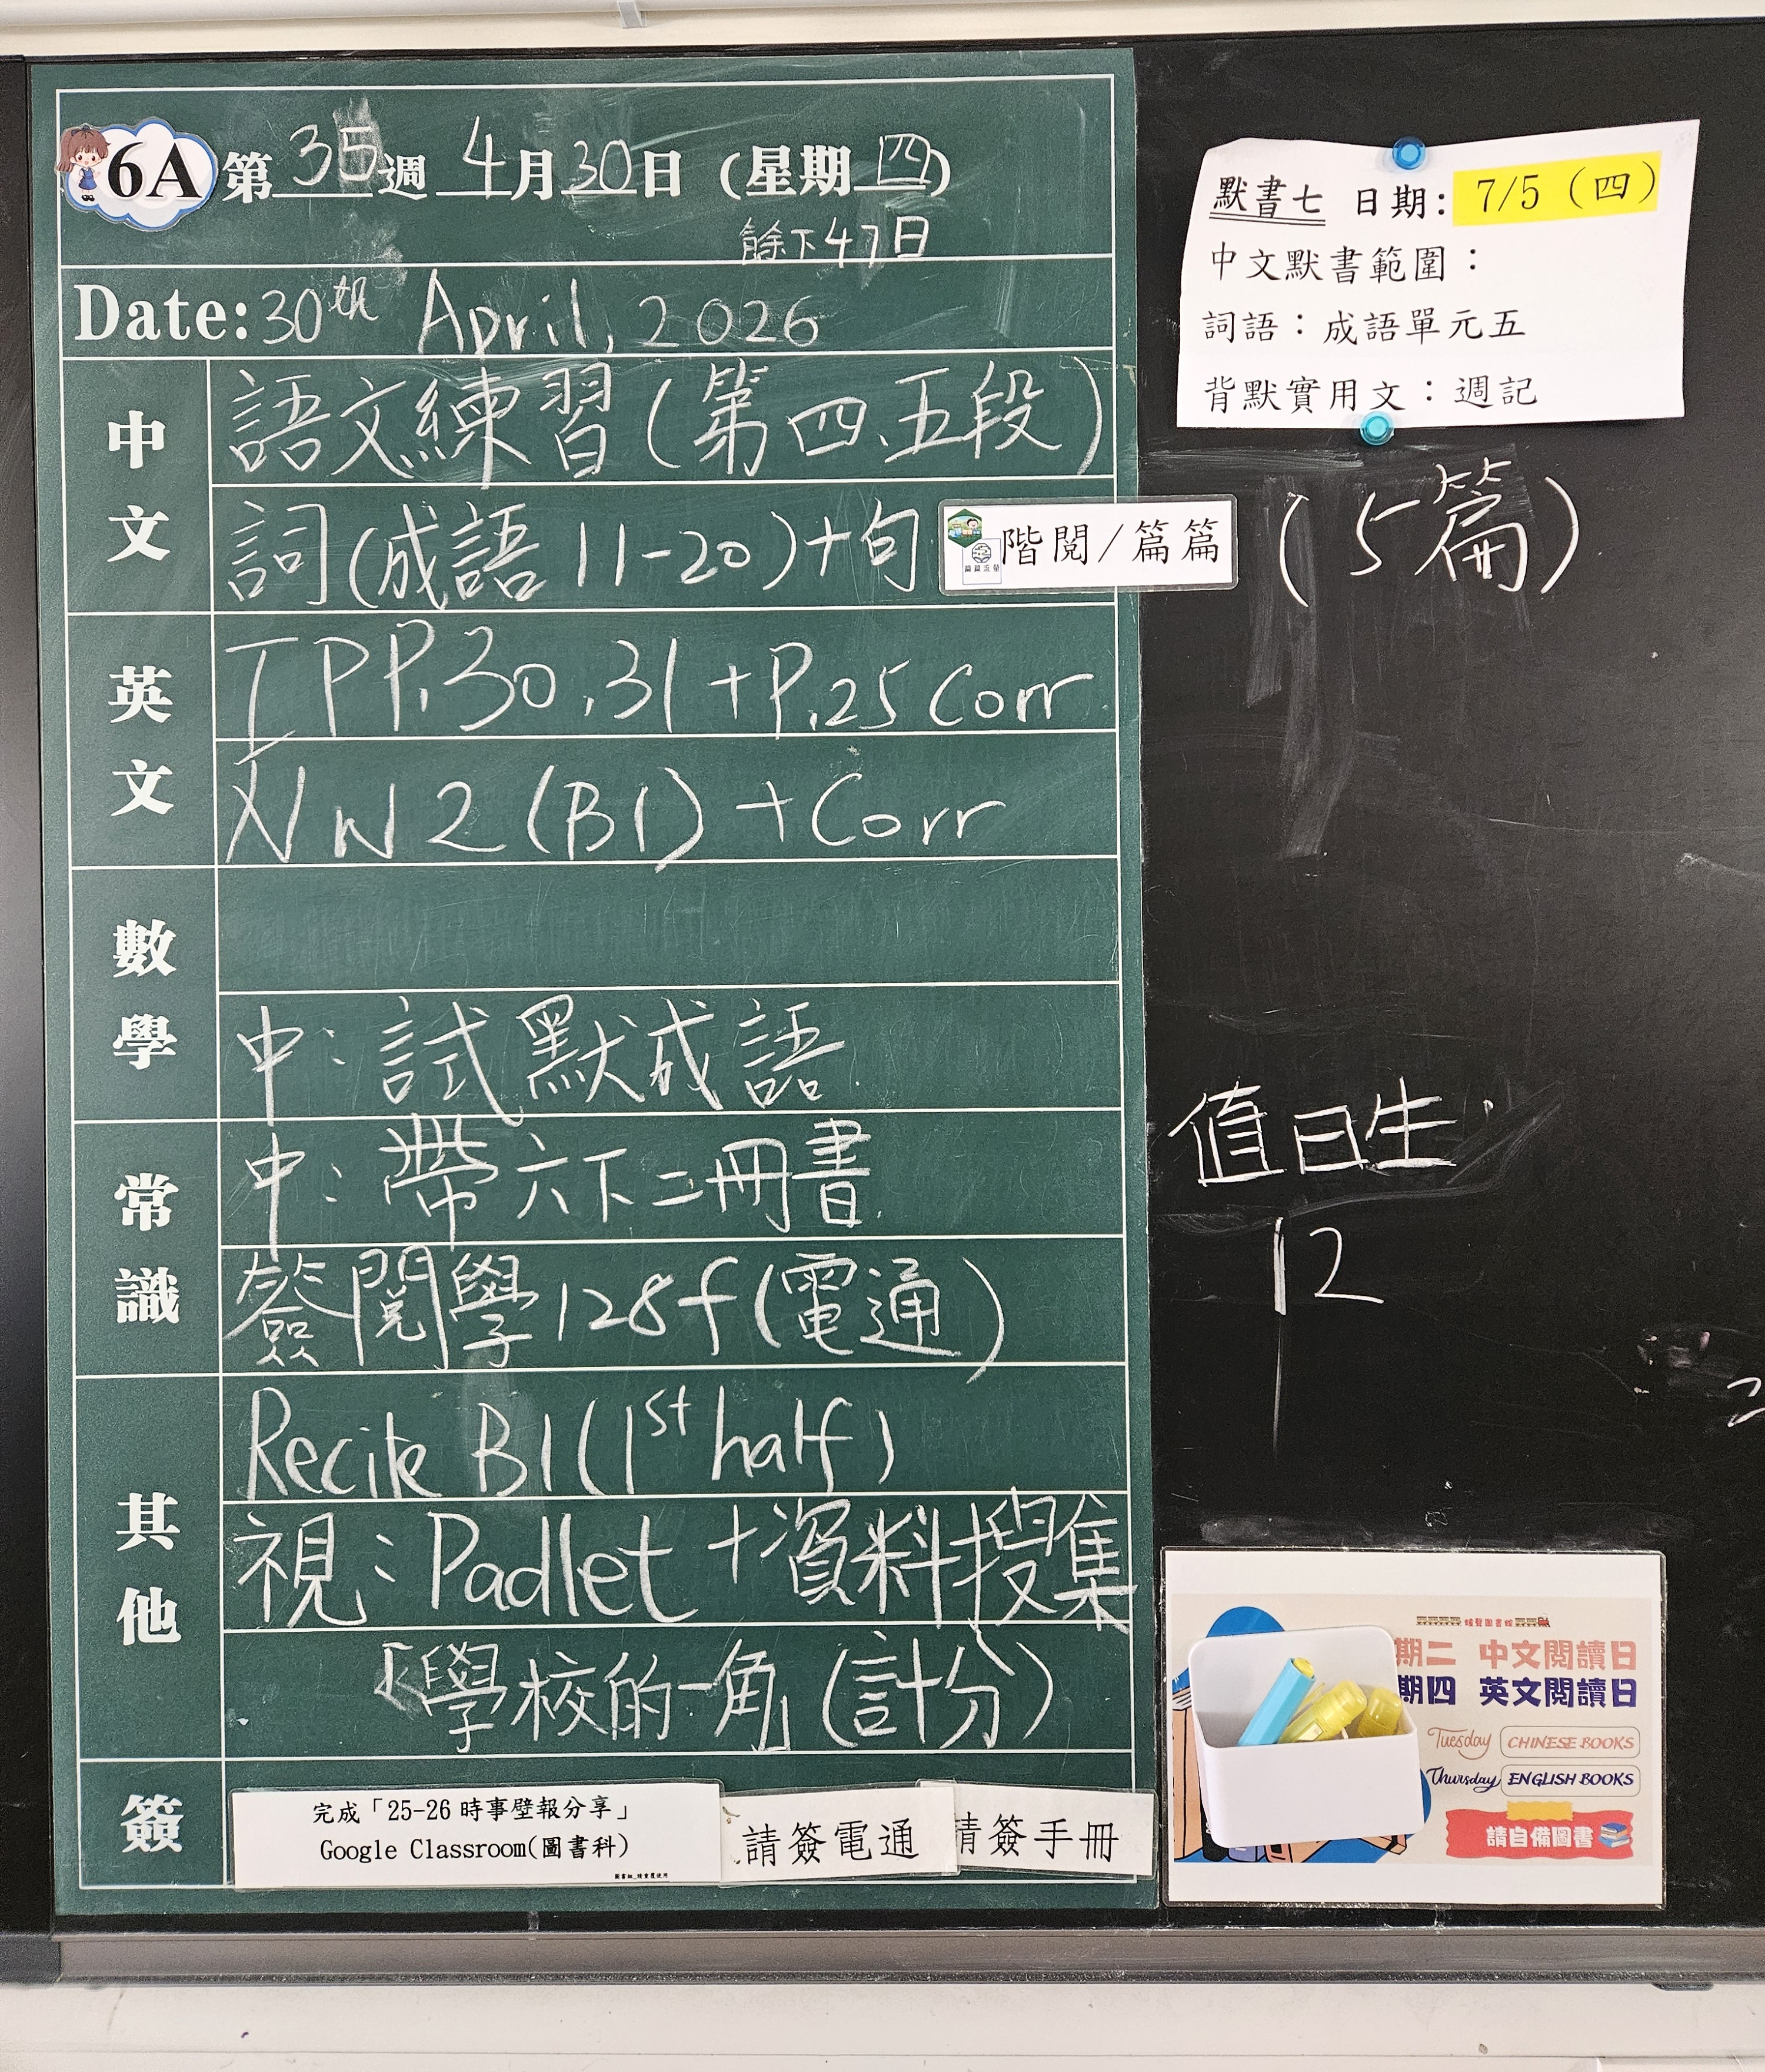 6A 第35週 4月30日 (星期四)
餘下47日
Date: 30th April, 2026
中文
語文練習(第四、五段)
詞(成語11-20)+句 階閱/篇篇 (5篇)
英文
TPP.30,31+P.25 Corr
NW2(B1)+Corr
數學
中:試默成語
常識
中:帶六下二冊書
簽閱學128f(電通)
其他
Recite B1(1st half)
視:Padlet+資料搜集
「學校的一角」(計分)
簽
完成「25-26 時事壁報分享」
Google Classroom(圖書科)
請簽電通
請簽手冊
默書七 日期: 7/5 (四)
中文默書範圍:
詞語:成語單元五
背默實用文:週記
值日生
12
期二 中文閱讀日
期四 英文閱讀日
Tuesday CHINESE BOOKS
Thursday ENGLISH BOOKS
請自備圖書